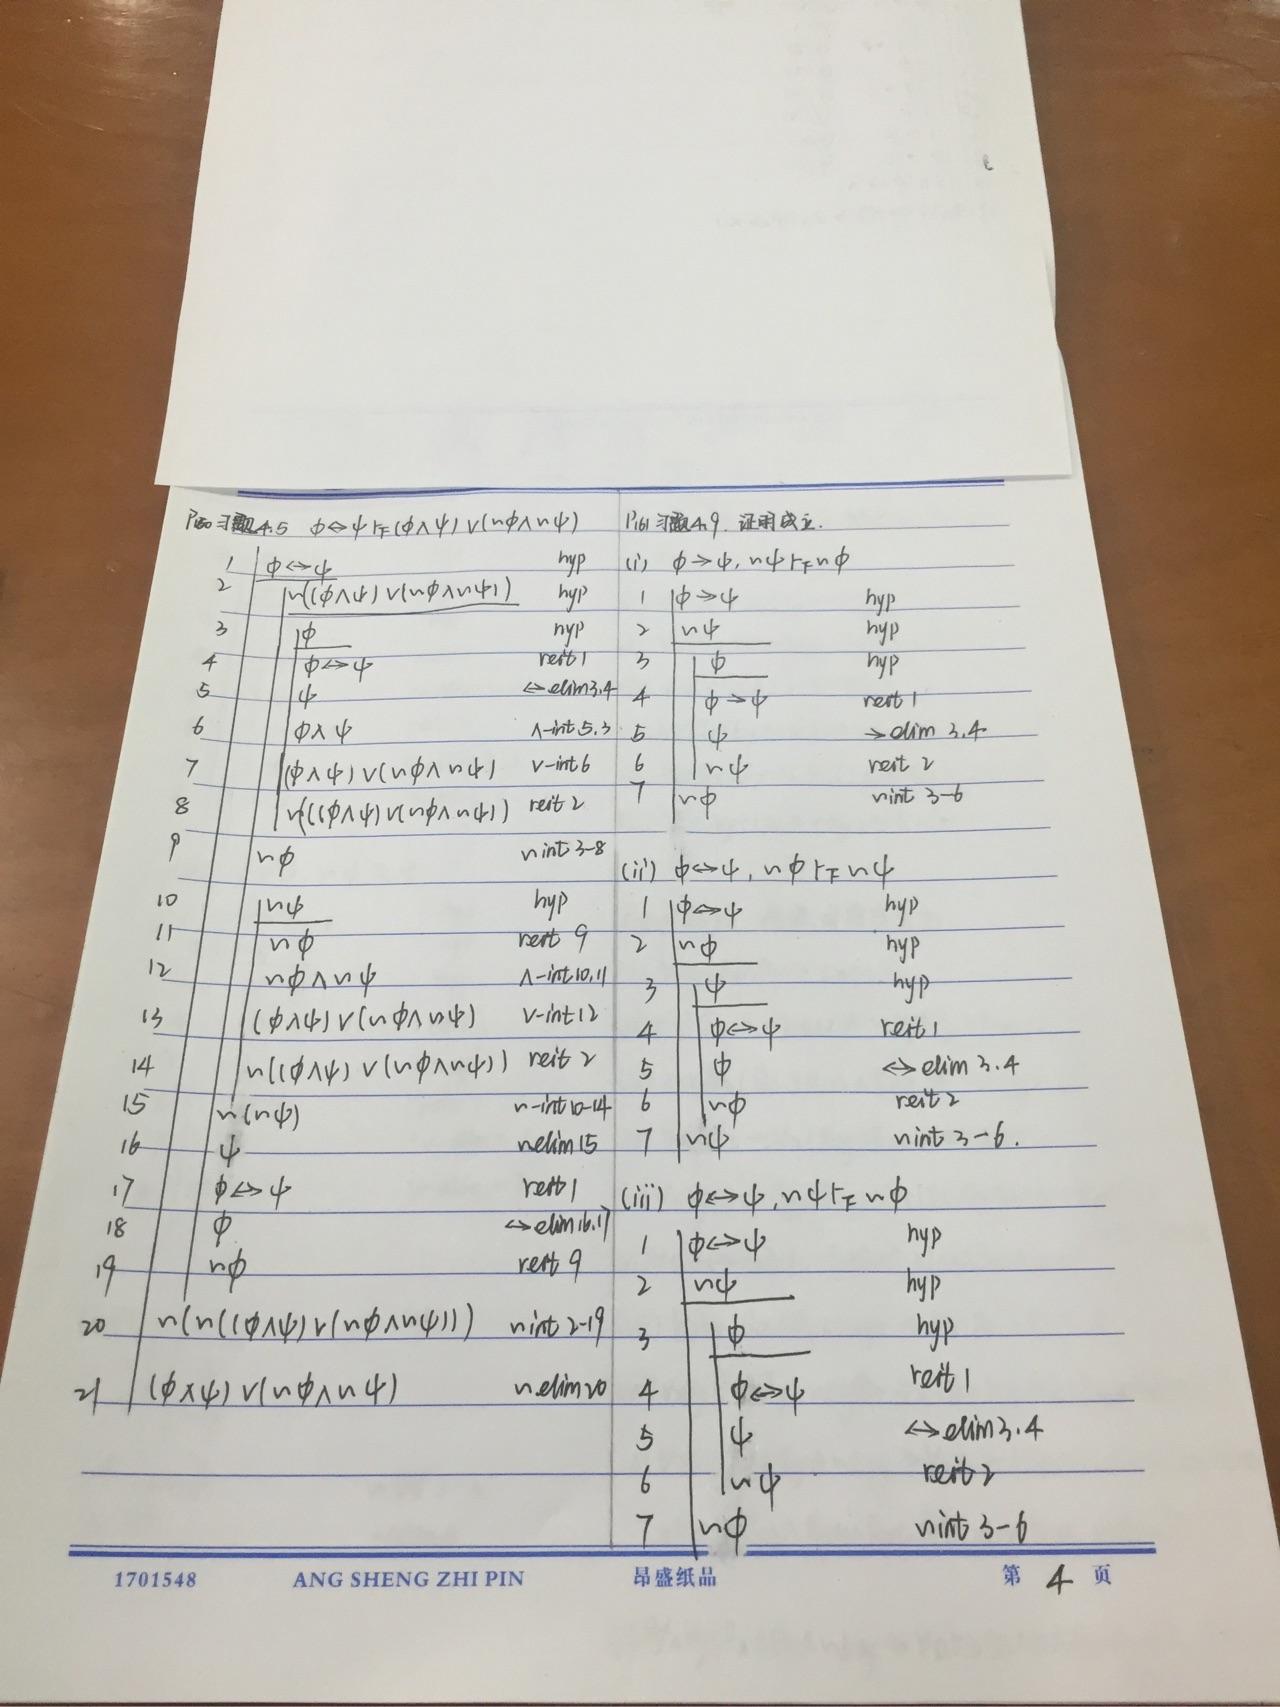 P160 习题4.5 ϕ↔ψ⊢F(ϕ∧ψ)∨(nϕ∧nψ)
1 ϕ↔ψ hyp
2 n((ϕ∧ψ)∨(nϕ∧nψ)) hyp
3 ϕ hyp
4 ϕ↔ψ reit 1
5 ψ ↔elim 3.4
6 ϕ∧ψ ∧-int 5.3
7 (ϕ∧ψ)∨(nϕ∧nψ) ∨-int 6
8 n((ϕ∧ψ)∨(nϕ∧nψ)) reit 2
9 nϕ nint 3-8
10 nψ hyp
11 nϕ reit 9
12 nϕ∧nψ ∧-int 10,11
13 (ϕ∧ψ)∨(nϕ∧nψ) ∨-int 12
14 n((ϕ∧ψ)∨(nϕ∧nψ)) reit 2
15 n(nψ) n-int 10-14
16 ψ nelim 15
17 ϕ↔ψ reit 1
18 ϕ ↔elim 16.17
19 nϕ reit 9
20 n(n((ϕ∧ψ)∨(nϕ∧nψ))) nint 2-19
21 (ϕ∧ψ)∨(nϕ∧nψ) nelim 20
P161 习题4.9. 证明成立.
(i) ϕ→ψ, nψ⊢F nϕ
1 ϕ→ψ hyp
2 nψ hyp
3 ϕ hyp
4 ϕ→ψ reit 1
5 ψ →elim 3.4
6 nψ reit 2
7 nϕ nint 3-6
(ii) ϕ↔ψ, nϕ⊢F nψ
1 ϕ↔ψ hyp
2 nϕ hyp
3 ψ hyp
4 ϕ↔ψ reit 1
5 ϕ ↔elim 3.4
6 nϕ reit 2
7 nψ nint 3-6.
(iii) ϕ↔ψ, nψ⊢F nϕ
1 ϕ↔ψ hyp
2 nψ hyp
3 ϕ hyp
4 ϕ↔ψ reit 1
5 ψ ↔elim 3.4
6 nψ reit 2
7 nϕ nint 3-6
1701548 ANG SHENG ZHI PIN 昂盛纸品 第 4 页